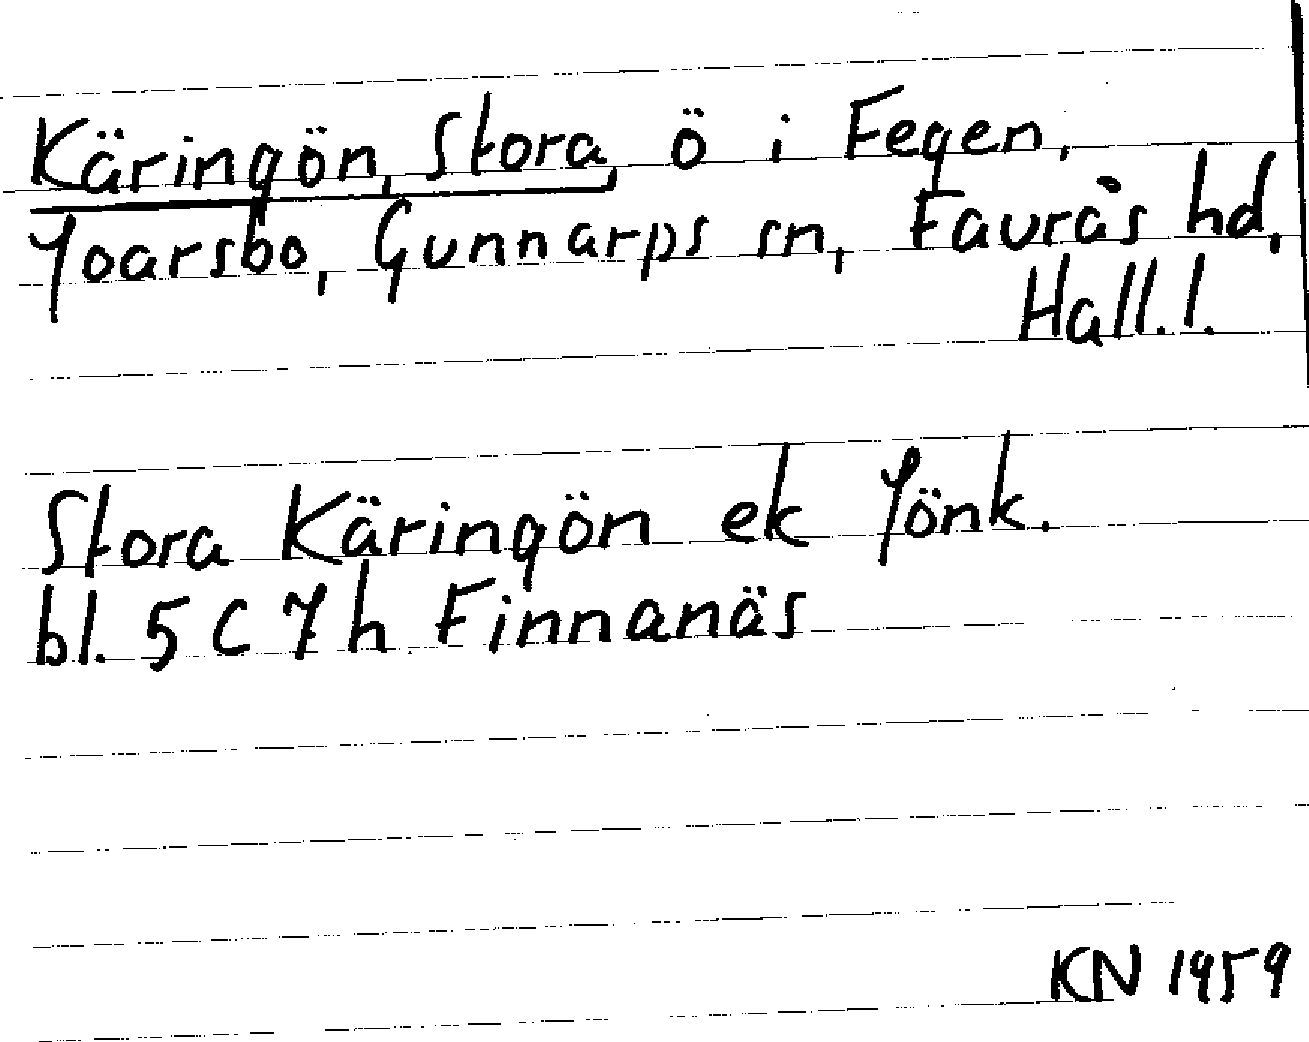 Käringön, Stora, ö i Fegen,
Joarsbo, Gunnarps sn, Faurås hd,
Hall. l.
Stora Käringön ek Jönk.
bl. 5 C 7 h Finnanäs
KN 1959